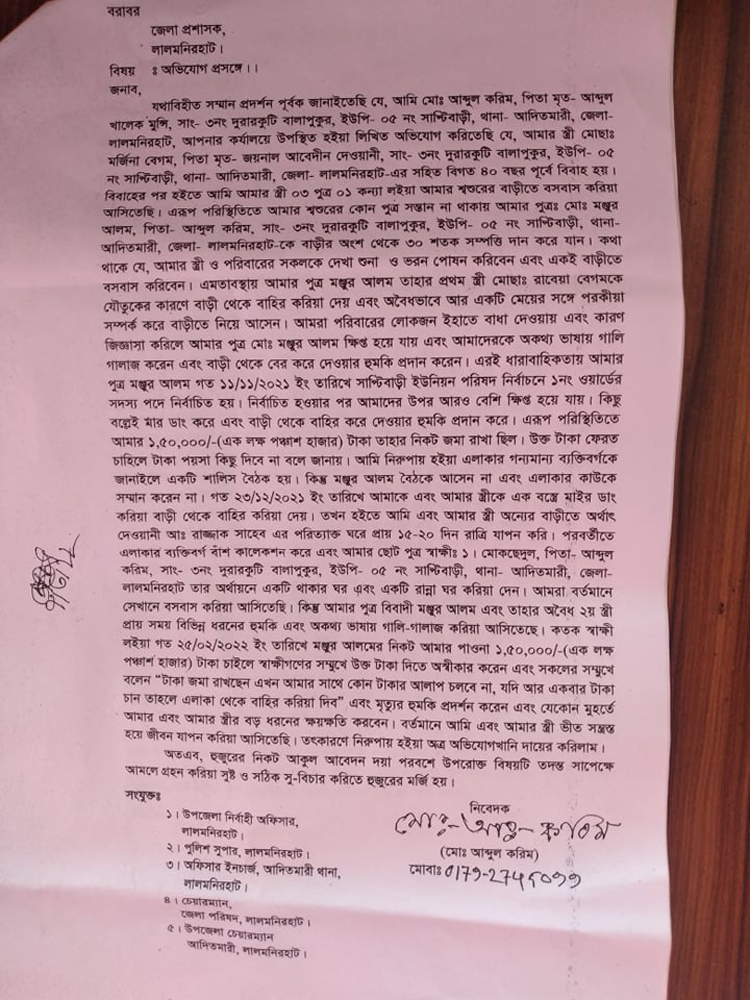 বরাবর
জেলা প্রশাসক,
লালমনিরহাট।
বিষয় ঃ অভিযোগ প্রসঙ্গে।।
জনাব,
যথাবিহীত সম্মান প্রদর্শন পূর্বক জানাইতেছি যে, আমি মোঃ আব্দুল করিম, পিতা মৃত- আব্দুল
খালেক মুন্সি, সাং- ৩নং দুরারকুটি বালাপুকুর, ইউপি- ০৫ নং সাপ্টিবাড়ী, থানা- আদিতমারী, জেলা-
লালমনিরহাট, আপনার কার্যালয়ে উপস্থিত হইয়া লিখিত অভিযোগ করিতেছি যে, আমার স্ত্রী মোছাঃ
মর্জিনা বেগম, পিতা মৃত- জয়নাল আবেদীন দেওয়ানী, সাং- ৩নং দুরারকুটি বালাপুকুর, ইউপি- ০৫
নং সাপ্টিবাড়ী, থানা- আদিতমারী, জেলা- লালমনিরহাট-এর সহিত বিগত ৪০ বছর পূর্বে বিবাহ হয়।
বিবাহের পর হইতে আমি আমার স্ত্রী ০৩ পুত্র ০১ কন্যা লইয়া আমার শ্বশুরের বাড়ীতে বসবাস করিয়া
আসিতেছি। এরূপ পরিস্থিতিতে আমার শ্বশুরের কোন পুত্র সন্তান না থাকায় আমার পুত্রঃ মোঃ মঞ্জুর
আলম, পিতা- আব্দুল করিম, সাং- ৩নং দুরারকুটি বালাপুকুর, ইউপি- ০৫ নং সাপ্টিবাড়ী, থানা-
আদিতমারী, জেলা- লালমনিরহাট-কে বাড়ীর অংশ থেকে ৩০ শতক সম্পত্তি দান করে যান। কথা
থাকে যে, আমার স্ত্রী ও পরিবারের সকলকে দেখা শুনা ও ভরন পোষন করিবেন এবং একই বাড়ীতে
বসবাস করিবেন। এমতাবস্থায় আমার পুত্র মঞ্জুর আলম তাহার প্রথম স্ত্রী মোছাঃ রাবেয়া বেগমকে
যৌতুকের কারণে বাড়ী থেকে বাহির করিয়া দেয় এবং অবৈধভাবে আর একটি মেয়ের সঙ্গে পরকীয়া
সম্পর্ক করে বাড়ীতে নিয়ে আসেন। আমরা পরিবারের লোকজন ইহাতে বাধা দেওয়ায় এবং কারণ
জিজ্ঞাসা করিলে আমার পুত্র মোঃ মঞ্জুর আলম ক্ষিপ্ত হয়ে যায় এবং আমাদেরকে অকথ্য ভাষায় গালি
গালাজ করেন এবং বাড়ী থেকে বের করে দেওয়ার হুমকি প্রদান করেন। এরই ধারাবাহিকতায় আমার
পুত্র মঞ্জুর আলম গত ১১/১১/২০২১ ইং তারিখে সাপ্টিবাড়ী ইউনিয়ন পরিষদ নির্বাচনে ১নং ওয়ার্ডের
সদস্য পদে নির্বাচিত হয়। নির্বাচিত হওয়ার পর আমাদের উপর আরও বেশি ক্ষিপ্ত হয়ে যায়। কিছু
বল্লেই মার ডাং করে এবং বাড়ী থেকে বাহির করে দেওয়ার হুমকি প্রদান করে। এরূপ পরিস্থিতিতে
আমার ১,৫০,০০০/-(এক লক্ষ পঞ্চাশ হাজার) টাকা তাহার নিকট জমা রাখা ছিল। উক্ত টাকা ফেরত
চাহিলে টাকা পয়সা কিছু দিবে না বলে জানায়। আমি নিরুপায় হইয়া এলাকার গন্যমান্য ব্যক্তিবর্গকে
জানাইলে একটি শালিস বৈঠক হয়। কিন্তু মঞ্জুর আলম বৈঠকে আসেন না এবং এলাকার কাউকে
সম্মান করেন না। গত ২৩/১২/২০২১ ইং তারিখে আমাকে এবং আমার স্ত্রীকে এক বস্ত্রে মাইর ডাং
করিয়া বাড়ী থেকে বাহির করিয়া দেয়। তখন হইতে আমি এবং আমার স্ত্রী অন্যের বাড়ীতে অর্থাৎ
দেওয়ানী আঃ রাজ্জাক সাহেব এর পরিত্যাক্ত ঘরে প্রায় ১৫-২০ দিন রাত্রি যাপন করি। পরবর্তীতে
এলাকার ব্যক্তিবর্গ বাঁশ কালেকশন করে এবং আমার ছোট পুত্র স্বাক্ষীঃ ১। মোকছেদুল, পিতা- আব্দুল
করিম, সাং- ৩নং দুরারকুটি বালাপুকুর, ইউপি- ০৫ নং সাপ্টিবাড়ী, থানা- আদিতমারী, জেলা-
লালমনিরহাট তার অর্থায়নে একটি থাকার ঘর এবং একটি রান্না ঘর করিয়া দেন। আমরা বর্তমানে
সেখানে বসবাস করিয়া আসিতেছি। কিন্তু আমার পুত্র বিবাদী মঞ্জুর আলম এবং তাহার অবৈধ ২য় স্ত্রী
প্রায় সময় বিভিন্ন ধরনের হুমকি এবং অকথ্য ভাষায় গালি-গালাজ করিয়া আসিতেছে। কতক স্বাক্ষী
লইয়া গত ২৫/০২/২০২২ ইং তারিখে মঞ্জুর আলমের নিকট আমার পাওনা ১,৫০,০০০/-(এক লক্ষ
পঞ্চাশ হাজার) টাকা চাইলে স্বাক্ষীগণের সম্মুখে উক্ত টাকা দিতে অস্বীকার করেন এবং সকলের সম্মুখে
বলেন “টাকা জমা রাখছেন এখন আমার সাথে কোন টাকার আলাপ চলবে না, যদি আর একবার টাকা
চান তাহলে এলাকা থেকে বাহির করিয়া দিব” এবং মৃত্যুর হুমকি প্রদর্শন করেন এবং যেকোন মুহুর্তে
আমার এবং আমার স্ত্রীর বড় ধরনের ক্ষয়ক্ষতি করবেন। বর্তমানে আমি এবং আমার স্ত্রী ভীত সন্ত্রস্ত
হয়ে জীবন যাপন করিয়া আসিতেছি। তৎকারণে নিরুপায় হইয়া অত্র অভিযোগখানি দায়ের করিলাম।
অতএব, হুজুরের নিকট আকুল আবেদন দয়া পরবশে উপরোক্ত বিষয়টি তদন্ত সাপেক্ষে
আমলে গ্রহন করিয়া সুষ্ট ও সঠিক সু-বিচার করিতে হুজুরের মর্জি হয়।
সংযুক্তঃ
১। উপজেলা নির্বাহী অফিসার,
লালমনিরহাট।
২। পুলিশ সুপার, লালমনিরহাট।
৩। অফিসার ইনচার্জ, আদিতমারী থানা,
লালমনিরহাট।
৪। চেয়ারম্যান,
জেলা পরিষদ, লালমনিরহাট।
৫। উপজেলা চেয়ারম্যান
আদিতমারী, লালমনিরহাট।
নিবেদক
মোঃ আঃ করিম
(মোঃ আব্দুল করিম)
মোবাঃ